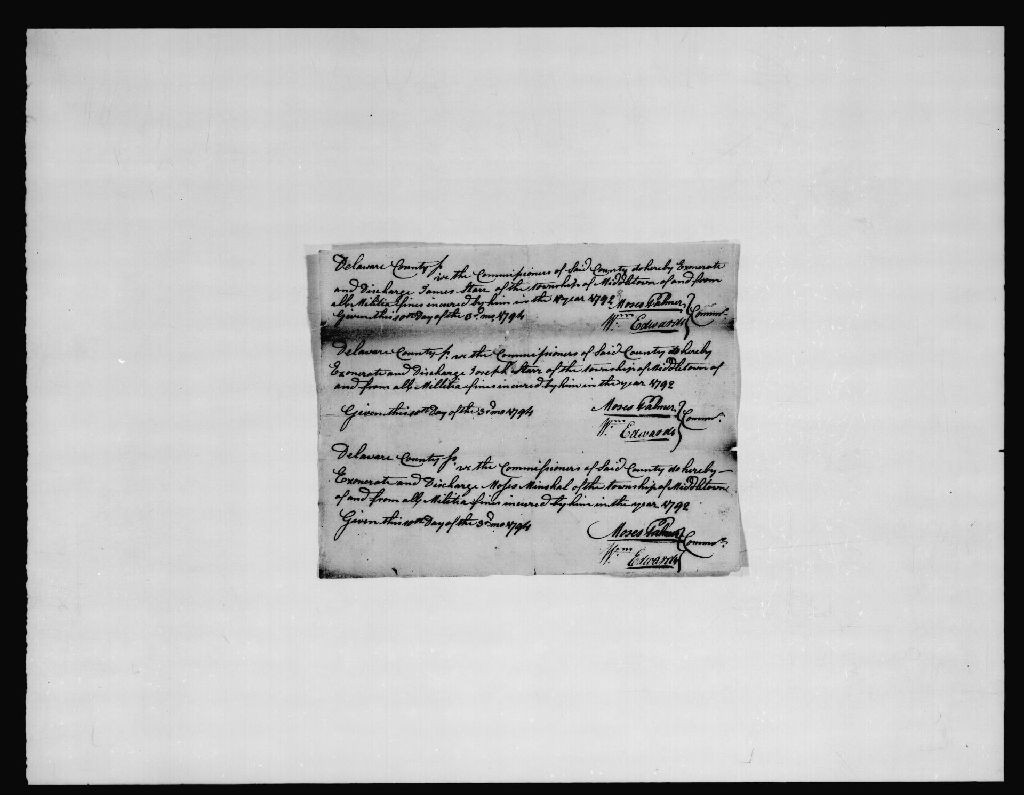 Delaware County ss.
we the Commissioners of Said County do hereby Exonerate
and Discharge James Starr of the township of Middletown of and from
all Militia fines incured by him in the year 1792
Given this 10th Day of the 3d mo 1794
Moses Palmer
Wm Edwards
Commrs
Delaware County ss. we the Commissioners of Said County do hereby
Exonerate and Discharge Joseph Starr of the township of Middletown of
and from all Militia fines incured by him in the year 1792
Given this 10th Day of the 3d mo 1794
Moses Palmer
Wm Edwards
Commrs
Delaware County ss.
we the Commissioners of Said County do hereby
Exonerate and Discharge Moses Minshal of the township of Middletown
of and from all Militia fines incured by him in the year 1792
Given this 10th Day of the 3d mo 1794
Moses Palmer
Wm Edwards
Commrs